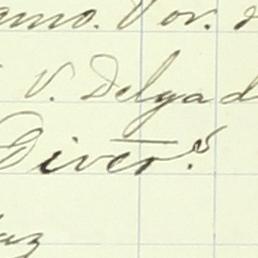 amo. Por.
V. Delgad
Diver.s
uz